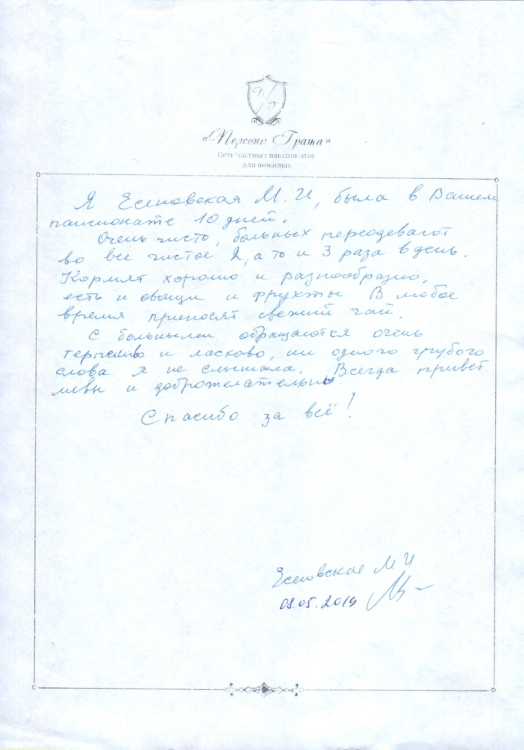 «Персона Гража»
Сеть частных пансионатов
для пожилых
Я Есеновская М. И, была в Вашем
пансионате 10 дней.
Очень чисто, больных переодевают
во все чистое 2, а то и 3 раза в день.
Кормят хорошо и разнообразно,
есть и овощи и фрукты В любое
время приносят свежий чай.
С больными обращаются очень
терпеливо и ласково, ни одного грубого
слова я не слышала. Всегда привет
ливы и доброжелательны
Спасибо за всё!
Есеновская М И
08.05.2019